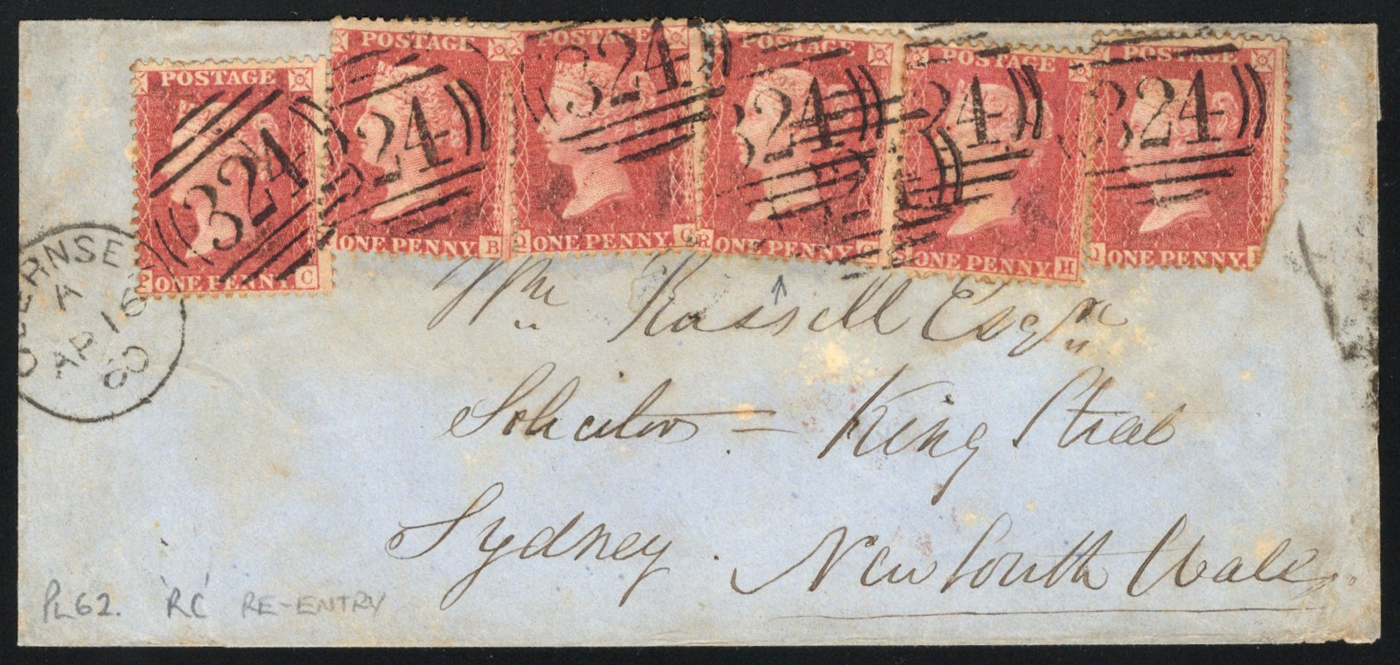 POSTAGE
POSTAGE
POSTAGE
POSTAGE
POSTAGE
POSTAGE
324
324
324
324
324
324
P ONE PENNY C
ONE PENNY. B
Q ONE PENNY. C
R ONE PENNY. C
ONE PENNY. H
ONE PENNY.
GUERNSEY
A
AP 16
60
Wm Russell Esqre
Solicitor = King Street
Sydney. New South Wales.
PL 62. RC RE-ENTRY